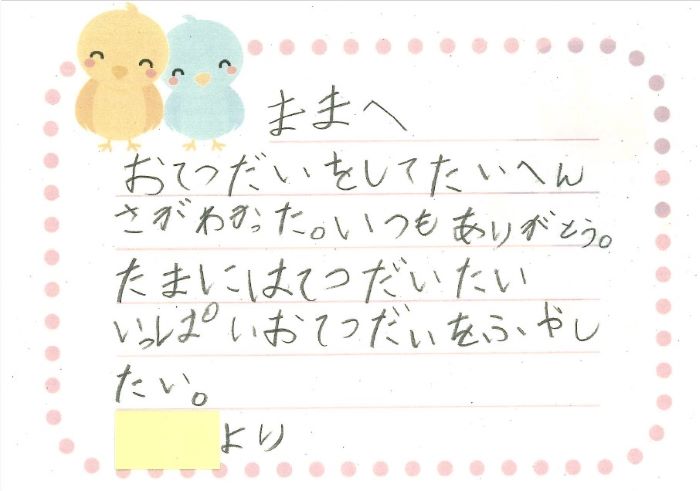 ままへ
おてつだいをしてたいへん
さがわかった。いつもありがとう。
たまにはてつだいたい
いっぱいおてつだいをふやし
たい。
より